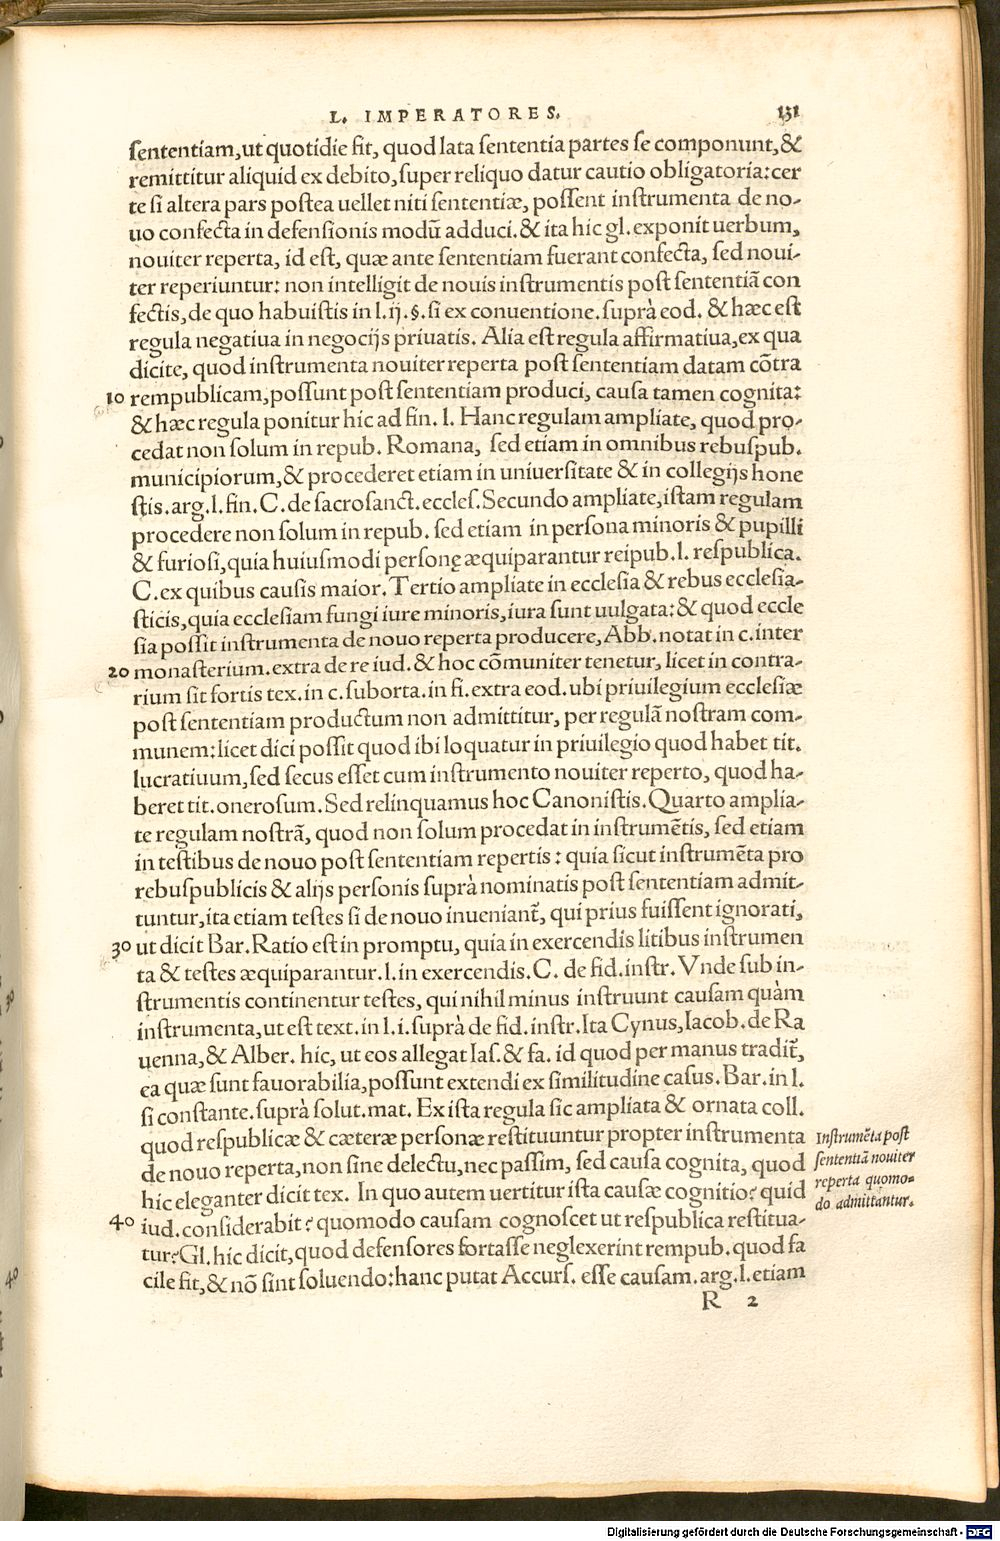 L. IMPERATORES. 131
sententiam,ut quotidie fit, quod lata sententia partes se componunt,&
remittitur aliquid ex debito,super reliquo datur cautio obligatoria:cer
te si altera pars postea uellet niti sententiæ, possent instrumenta de no-
uo confecta in defensionis modũ adduci.& ita hic gl.exponit uerbum,
nouiter reperta, id est, quæ ante sententiam fuerant confecta, sed noui-
ter reperiuntur: non intelligit de nouis instrumentis post sententiã con
fectis,de quo habuistis in l.ij.§.si ex conuentione.suprà eod. & hæc est
regula negatiua in negocijs priuatis. Alia est regula affirmatiua,ex qua
dicite, quod instrumenta nouiter reperta post sententiam datam cõtra
10 rempublicam,possunt post sententiam produci, causa tamen cognita:
& hæc regula ponitur hic ad fin. l. Hanc regulam ampliate, quod pro-
cedat non solum in repub. Romana, sed etiam in omnibus rebuspub.
municipiorum,& procederet etiam in uniuersitate & in collegijs hone
stis.arg.l.fin.C.de sacrosanct.eccles.Secundo ampliate,istam regulam
procedere non solum in repub. sed etiam in persona minoris & pupilli
& furiosi,quia huiusmodi personę æquiparantur reipub.l.respublica.
C.ex quibus causis maior.Tertio ampliate in ecclesia & rebus ecclesia-
sticis,quia ecclesiam fungi iure minoris,iura sunt uulgata:& quod eccle
sia possit instrumenta de nouo reperta producere,Abb.notat in c.inter
20 monasterium.extra de re iud.& hoc cõmuniter tenetur, licet in contra-
rium sit fortis tex.in c.suborta.in fi.extra eod.ubi priuilegium ecclesiæ
post sententiam productum non admittitur, per regulã nostram com-
munem:licet dici possit quod ibi loquatur in priuilegio quod habet tit.
lucratiuum,sed secus esset cum instrumento nouiter reperto, quod ha-
beret tit.onerosum.Sed relinquamus hoc Canonistis.Quarto amplia-
te regulam nostrã, quod non solum procedat in instrumẽtis, sed etiam
in testibus de nouo post sententiam repertis: quia sicut instrumẽta pro
rebuspublicis & alijs personis suprà nominatis post sententiam admit-
tuntur,ita etiam testes si de nouo inueniant̃, qui prius fuissent ignorati,
30 ut dicit Bar.Ratio est in promptu, quia in exercendis litibus instrumen
ta & testes æquiparantur.l.in exercendis.C. de fid.instr.Vnde sub in-
strumentis continentur testes, qui nihil minus instruunt causam quàm
instrumenta,ut est text.in l.i.suprà de fid.instr.Ita Cynus,Iacob.de Ra
uenna,& Alber. hic, ut eos allegat Ias.& fa. id quod per manus tradit̃,
ea quæ sunt fauorabilia,possunt extendi ex similitudine casus.Bar.in l.
si constante.suprà solut.mat. Ex ista regula sic ampliata & ornata coll.
quod respublicæ & cæteræ personæ restituuntur propter instrumenta
de nouo reperta,non sine delectu,nec passim, sed causa cognita, quod
hic eleganter dicit tex. In quo autem uertitur ista causæ cognitio? quid
40 iud.considerabit? quomodo causam cognoscet ut respublica restitua-
tur?Gl.hic dicit,quod defensores fortasse neglexerint rempub.quod fa
cile fit,& nõ sint soluendo:hanc putat Accurs. esse causam.arg.l.etiam
R 2
Instrumẽta post
sententiã nouiter
reperta quomo-
do admittantur.
Digitalisierung gefördert durch die Deutsche Forschungsgemeinschaft - DFG